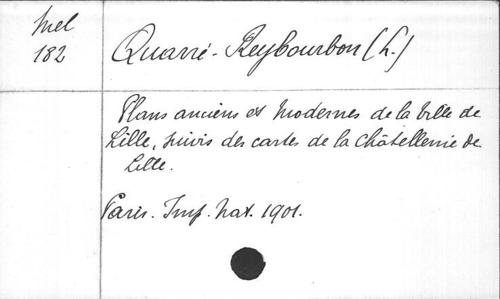 Mel
182
Quarré-Reybourbon (L.)
Plans anciens et modernes de la ville de
Lille, suivis des cartes de la châtellenie de
Lille.
Paris. Imp. Nat. 1901.